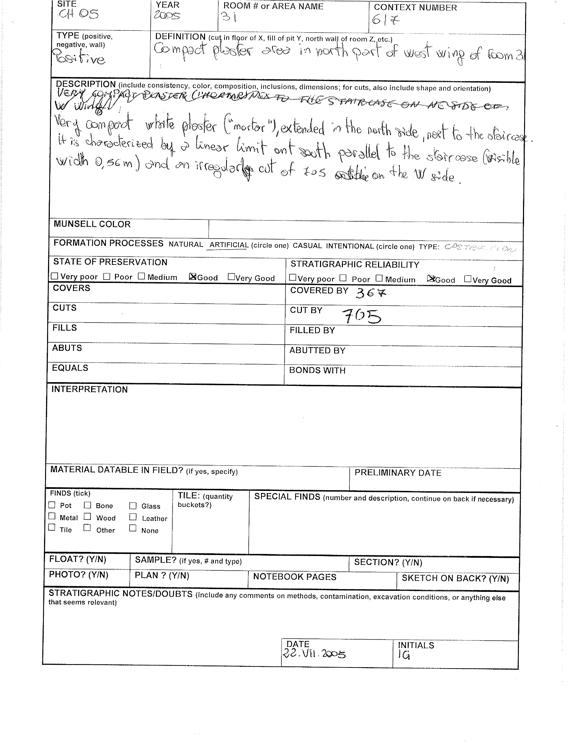 SITE YEAR ROOM # or AREA NAME CONTEXT NUMBER
CH 05 2005 31 617
TYPE (positive, negative, wall) DEFINITION (cut in floor of X, fill of pit Y, north wall of room Z, etc.)
Positive Compact plaster area in north part of west wing of room 31
DESCRIPTION (include consistency, color, composition, inclusions, dimensions; for cuts, also include shape and orientation)
VERY COMPACT PLASTER TO THE STAIRCASE ON NE SIDE OF
W WING
Very compact white plaster ("mortar"), extended in the north side, next to the staircase.
it is characterized by a linear limit ont south parallel to the staircase (visible
width 0,56m) and an irregular cut of 705 on the W side.
MUNSELL COLOR
FORMATION PROCESSES NATURAL ARTIFICIAL (circle one) CASUAL INTENTIONAL (circle one) TYPE:
STATE OF PRESERVATION STRATIGRAPHIC RELIABILITY
☐Very poor ☐ Poor ☐ Medium ☒Good ☐Very Good ☐Very poor ☐ Poor ☐ Medium ☒Good ☐Very Good
COVERS COVERED BY 367
CUTS CUT BY 705
FILLS FILLED BY
ABUTS ABUTTED BY
EQUALS BONDS WITH
INTERPRETATION
MATERIAL DATABLE IN FIELD? (if yes, specify) PRELIMINARY DATE
FINDS (tick) TILE: (quantity buckets?) SPECIAL FINDS (number and description, continue on back if necessary)
☐ Pot ☐ Bone ☐ Glass
☐ Metal ☐ Wood ☐ Leather
☐ Tile ☐ Other ☐ None
FLOAT? (Y/N) SAMPLE? (if yes, # and type) SECTION? (Y/N)
PHOTO? (Y/N) PLAN ? (Y/N) NOTEBOOK PAGES SKETCH ON BACK? (Y/N)
STRATIGRAPHIC NOTES/DOUBTS (include any comments on methods, contamination, excavation conditions, or anything else
that seems relevant)
DATE INITIALS
22.VII.2005 IG